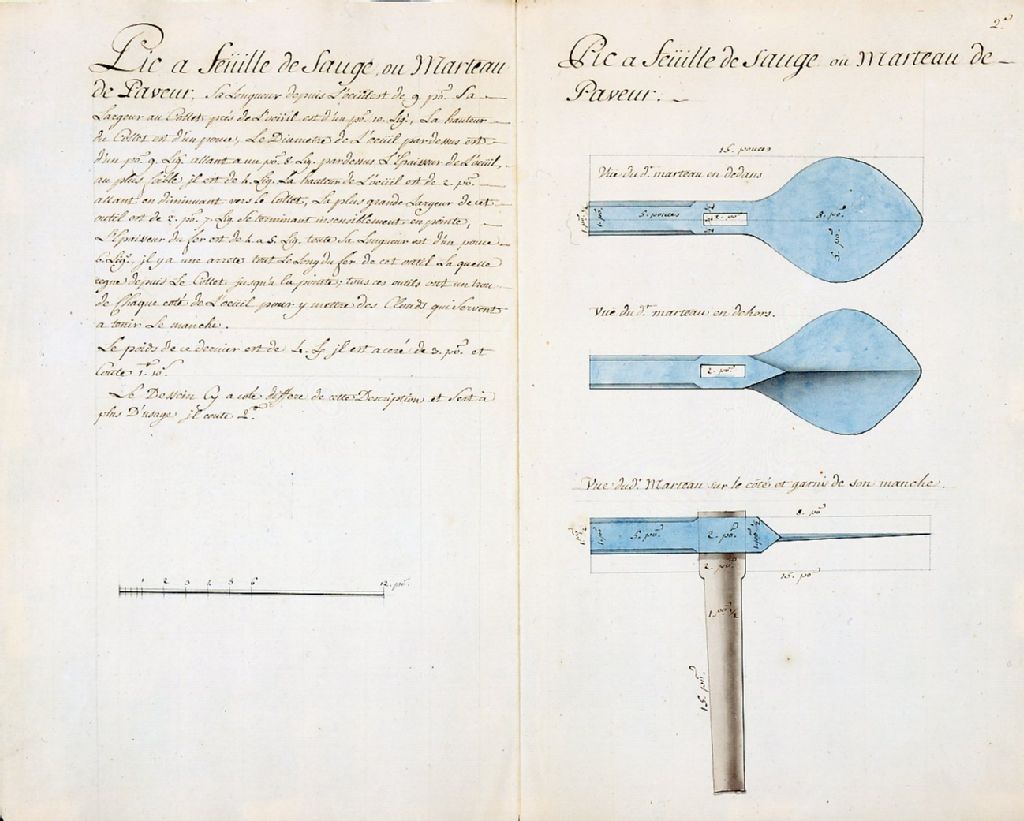 Pic a feüille de Sauge, ou Marteau
de Paveur. Sa Longueur depuis L'oeil est de 9 po.ces Sa
Largeur au Collet près de L'oeüil est d'un po. 10. Lig.s, La hauteur
du Collet est d'un pouce, Le Diametre de L'oeüil par dessus est
d'un po. 9. Lig. allant a un po. 8. Lig. par dessus L'Epaisseur de L'oeüil,
au plus foible il est de 4. Lig. La hauteur de L'oeüil est de 2. po.
allant en diminuant vers le Collet, La plus grande Largeur de cet
outil est de 5. po. 7. Lig. se terminant insensiblement en pointe,
L'Epaisseur du fer est de 4. a 5. Lig. toute sa Longueur est d'un pouce
6. Lig. il y a une arrete tout Le Long du fer de cet outil La quelle
regne depuis Le Collet jusqu'à la pointe; tous ces outils ont un trou
de Chaque coté de L'oeüil pour y mettre des Clouds qui servent
a tenir Le manche.
Le poids de ce dernier est de 4. il est aceré de 3. po. et
Coute
Le Dessein Cy a coté differe de cette Description et sert a
plus D'usage il coute 2.
1 2 3 4 5 6 12. po.
2.
Pic a feüille de Sauge ou Marteau de
Paveur.
15. pouces
Vüe du d. marteau en dedans
5. pouces 2. po. 8. po.
Vüe du d. marteau en dehors.
2. po.
Vüe du d. Marteau sur le côté et garni de son manche.
8. po.
5. po. 2. po.
2. po. 15. po.
1 po. 1/2
15. po.